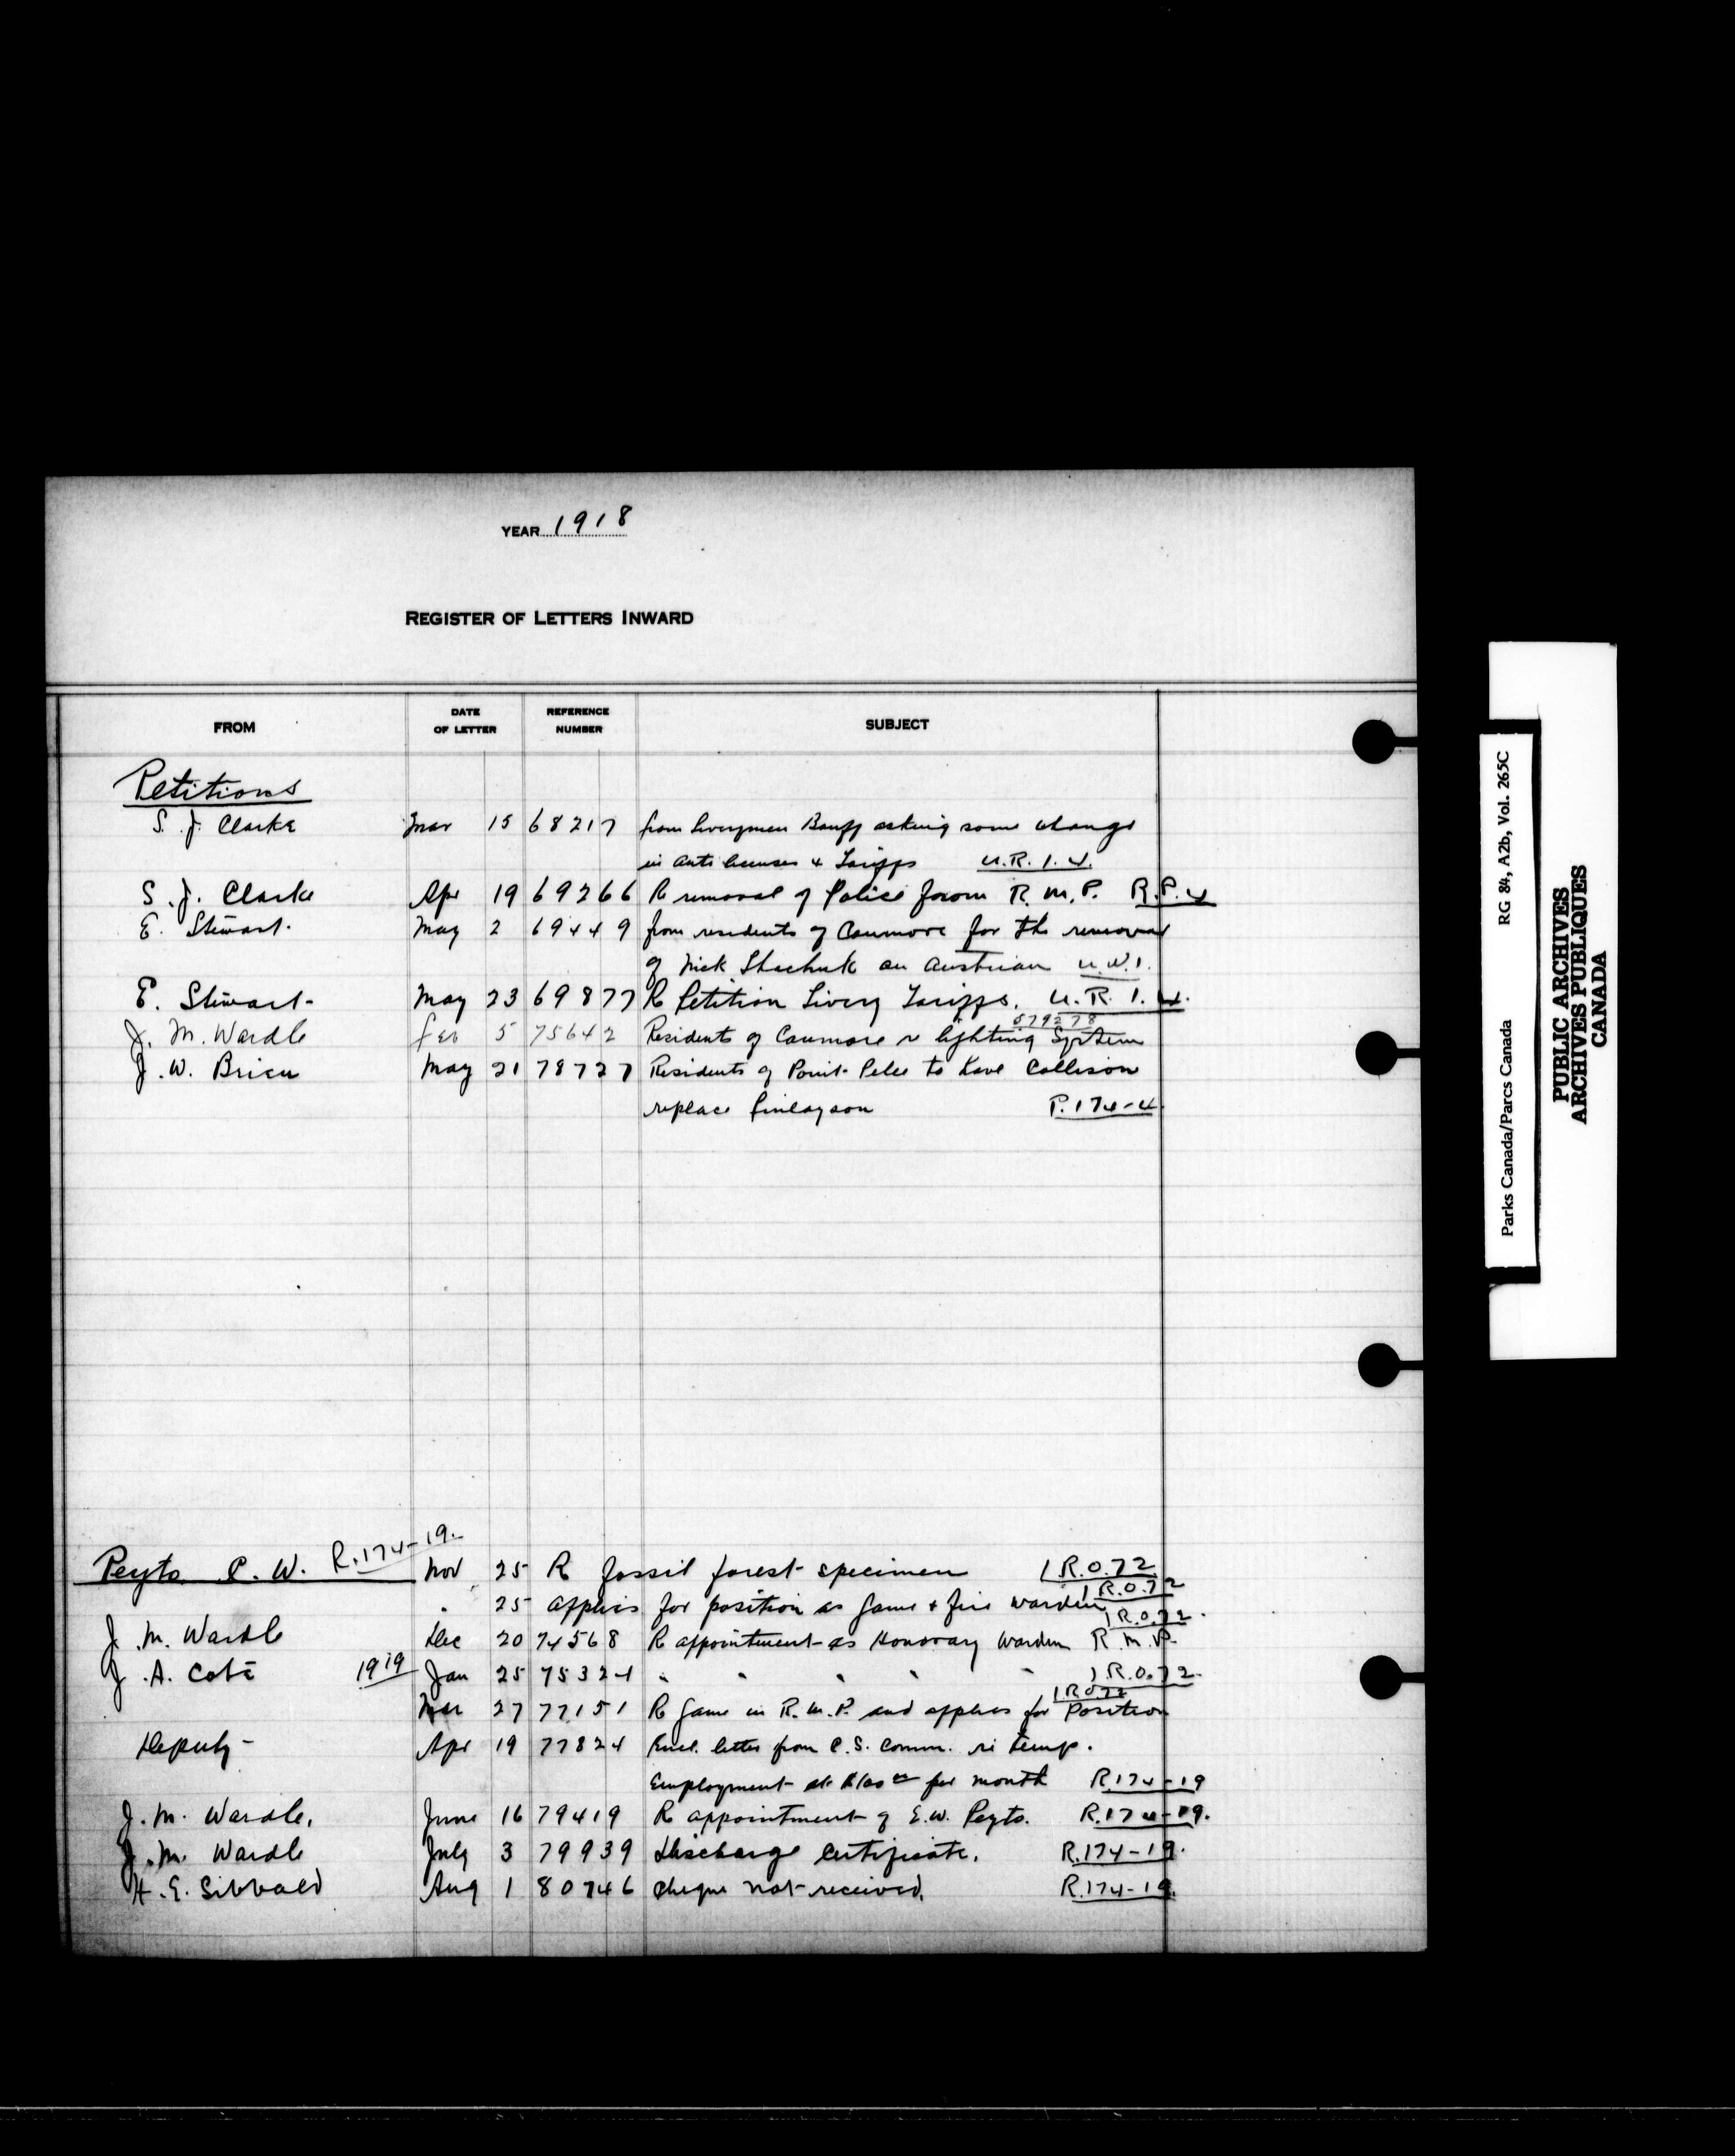 YEAR 1918
REGISTER OF LETTERS INWARD
FROM DATE OF LETTER REFERENCE NUMBER SUBJECT
Petitions
S. J. Clarke Mar 15 68217 from liverymen Banff asking some change
in auto licenses & Tariffs U.R.1.4.
S. J. Clarke Apr 19 69266 R removal of Police from R.M.P. R.P.4
E. Stewart. May 2 69449 from residents of Canmore for the removal
of Nick an Austrian U.W.1.
E. Stewart May 23 69877 R Petition Livery Tariffs. U.R.1.4.
579278
J. M. Wardle Feb 5 75642 Residents of Canmore r lighting System
J. W. Brien May 21 78727 Residents of Point Pelee to have Collison
replace Finlayson P.174-4
Peyto E. W. R.174-19. Nov 25 R fossil forest specimen 1R.O.72
" 25 applies for position as Game & fire warden 1R.O.72
J. M. Wardle Dec 20 74568 R appointment as Honorary Warden R.M.P. 1R.O.72.
J. A. Coté 1919 Jan 25 75324 " " " " " 1R.O.72.
Mar 27 77151 R Game in R.M.P. and applies for Position 1R072
Deputy - Apr 19 77824 Encl. letter from C.S. Comm. re temp.
Employment at per month R.174-19
J. M. Wardle. June 16 79419 R appointment of E.W. Peyto. R.174-19.
J. M. Wardle July 3 79939 Discharge Certificate. R.174-19.
H. E. Sibbald Aug 1 80746 cheque not received. R.174-19.
Parks Canada/Parcs Canada RG 84, A2b, Vol. 265C
PUBLIC ARCHIVES
ARCHIVES PUBLIQUES
CANADA